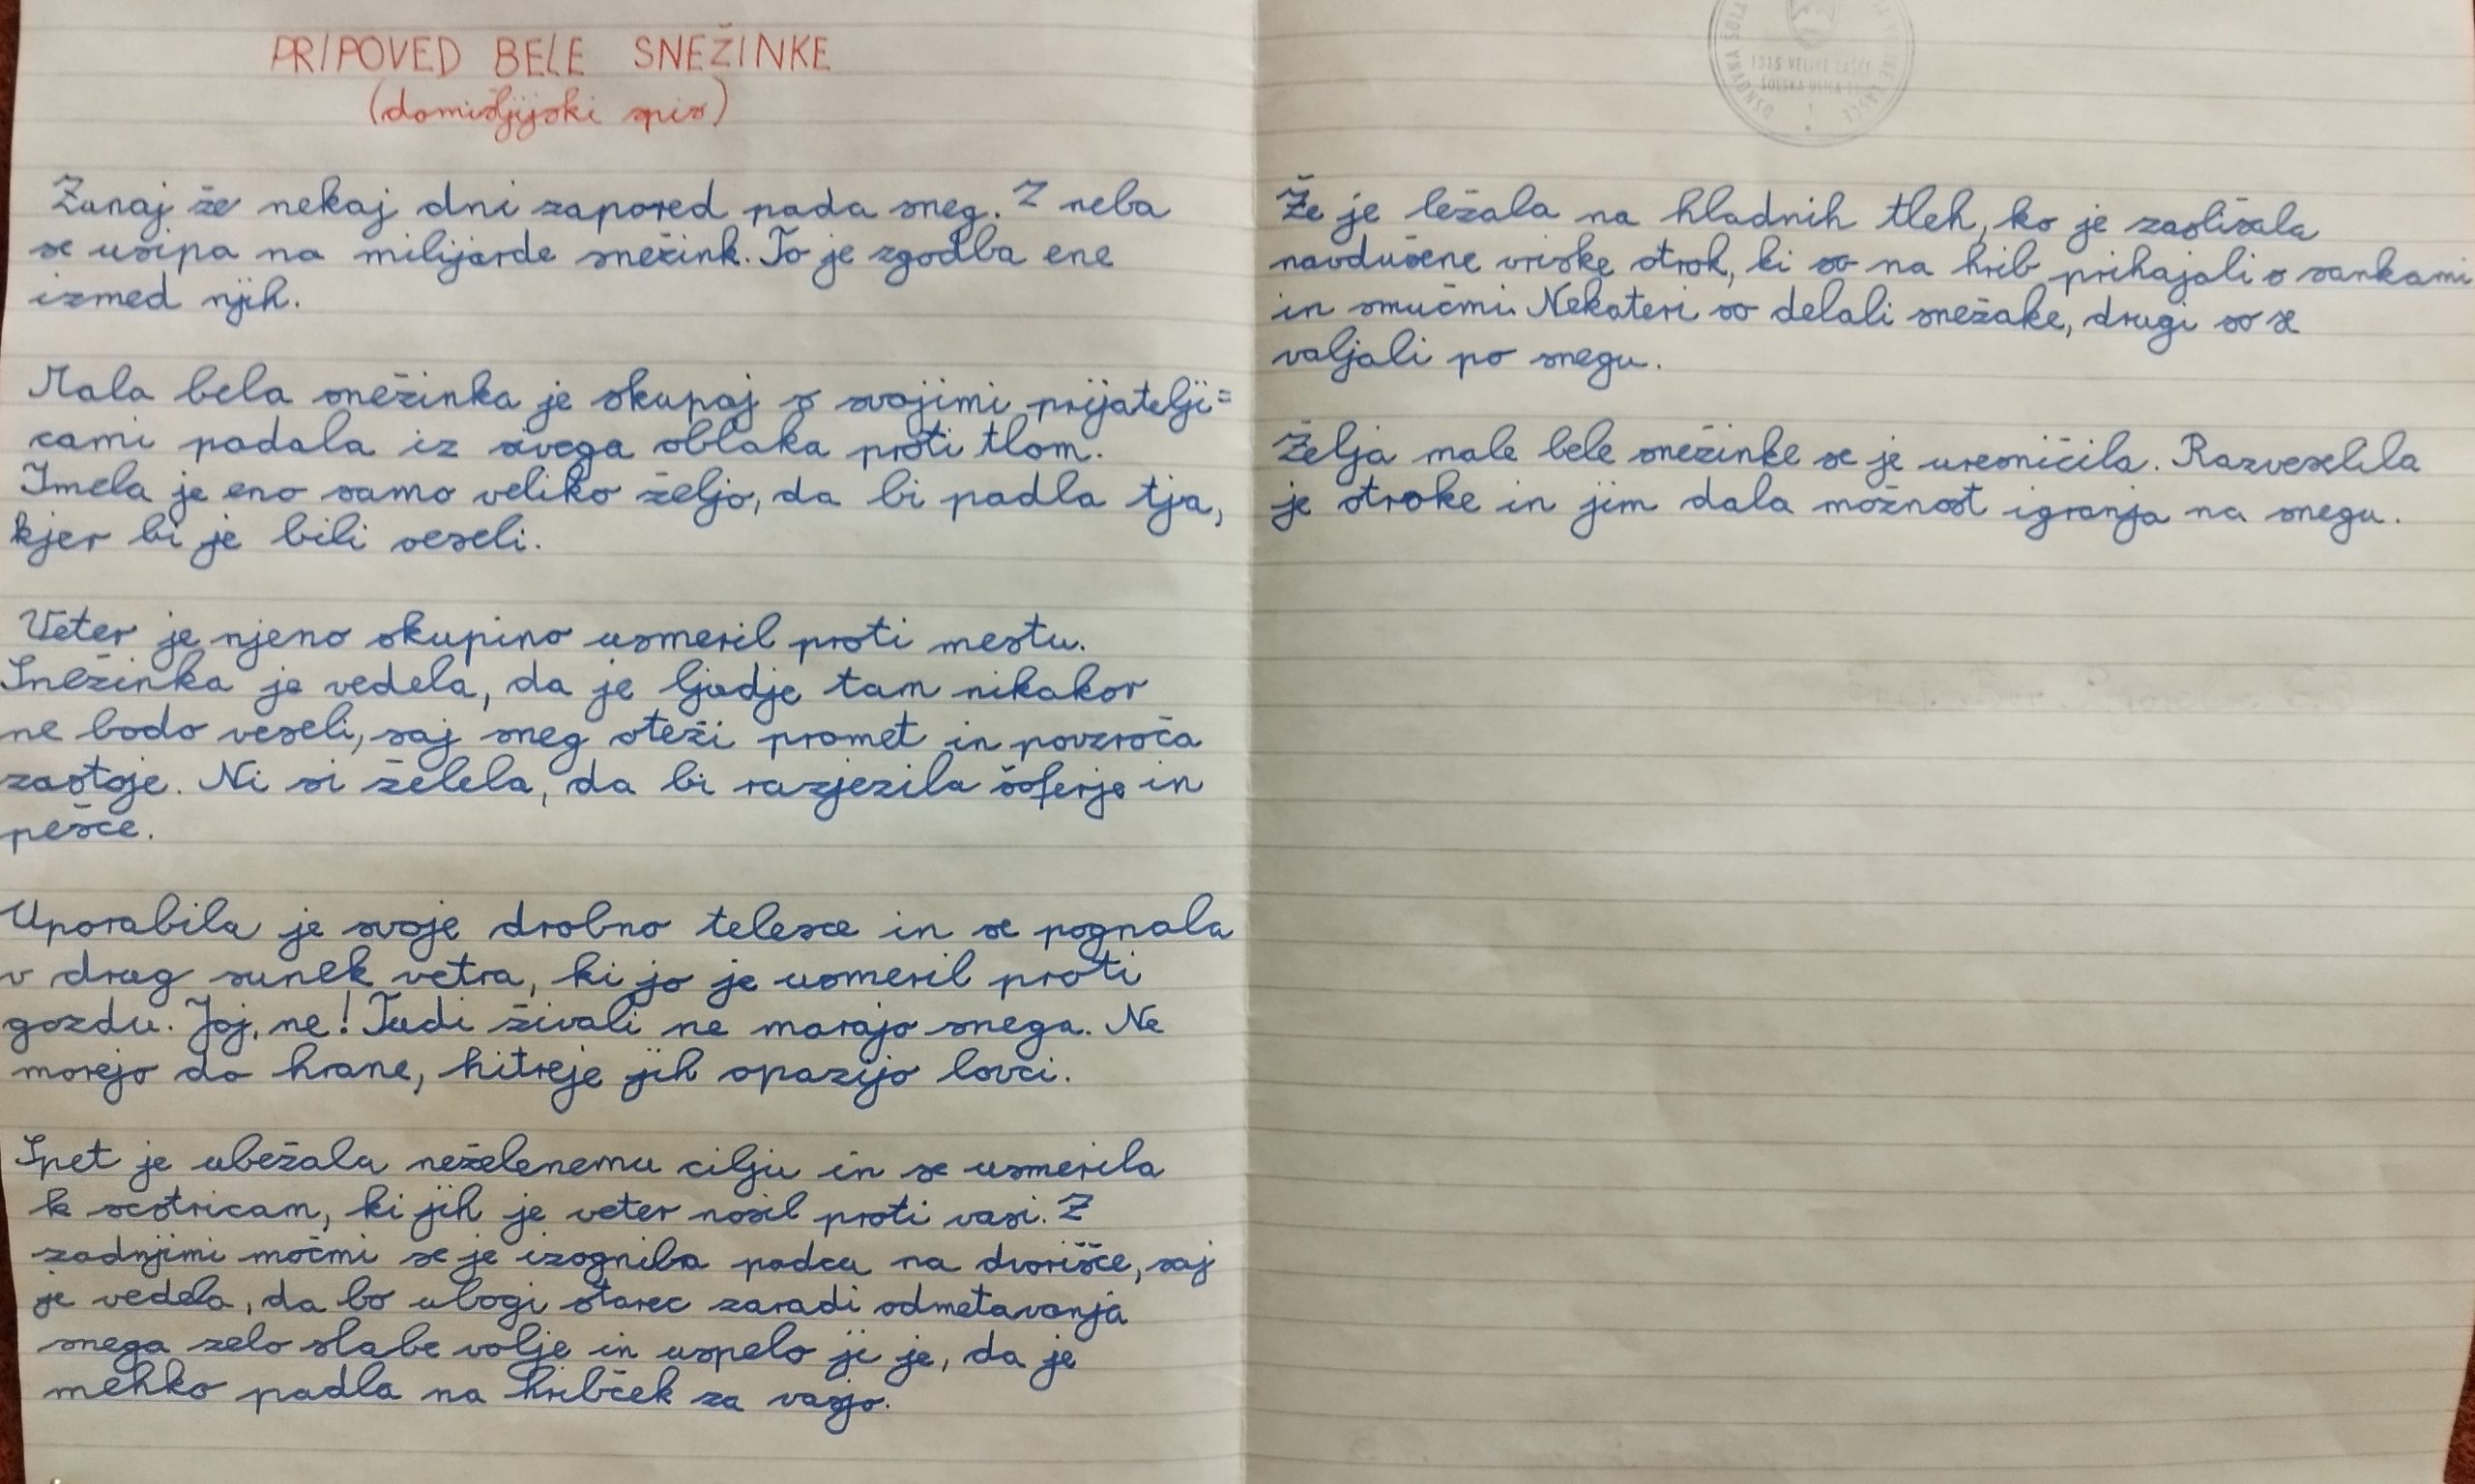 PRIPOVED BELE SNEŽINKE
(domišljijski spis)
Zunaj že nekaj dni zapored pada sneg. Z neba
se usipa na milijarde snežink. To je zgodba ene
izmed njih.
Mala bela snežinka je skupaj s svojimi prijatelji=
cami padala iz sivega oblaka proti tlom.
Imela je eno samo veliko željo, da bi padla tja,
kjer bi je bili veseli.
Veter je njeno skupino usmeril proti mestu.
Snežinka je vedela, da je ljudje tam nikakor
ne bodo veseli, saj sneg oteži promet in povzroča
zastoje. Ni si želela, da bi razjezila šoferje in
pešce.
Uporabila je svoje drobno telesce in se pognala
v drug sunek vetra, ki jo je usmeril proti
gozdu. Joj, ne! Tudi živali ne marajo snega. Ne
morejo do hrane, hitreje jih opazijo lovci.
Spet je ubežala neželenemu cilju in se usmerila
k sestricam, ki jih je veter nosil proti vasi. Z
zadnjimi močmi se je izognila padcu na dvorišče, saj
je vedela, da bo ubogi starec zaradi odmetavanja
snega zelo slabe volje in uspelo ji je, da je
mehko padla na hribček za vasjo.
OSNOVNA ŠOLA
1315 VELIKE LAŠČE
ŠOLSKA ULICA
Že je ležala na hladnih tleh, ko je zaslišala
navdušene vriske otrok, ki so na hrib prihajali s sankami
in smučmi. Nekateri so delali snežake, drugi so se
valjali po snegu.
Želja male bele snežinke se je uresničila. Razveselila
je otroke in jim dala možnost igranja na snegu.